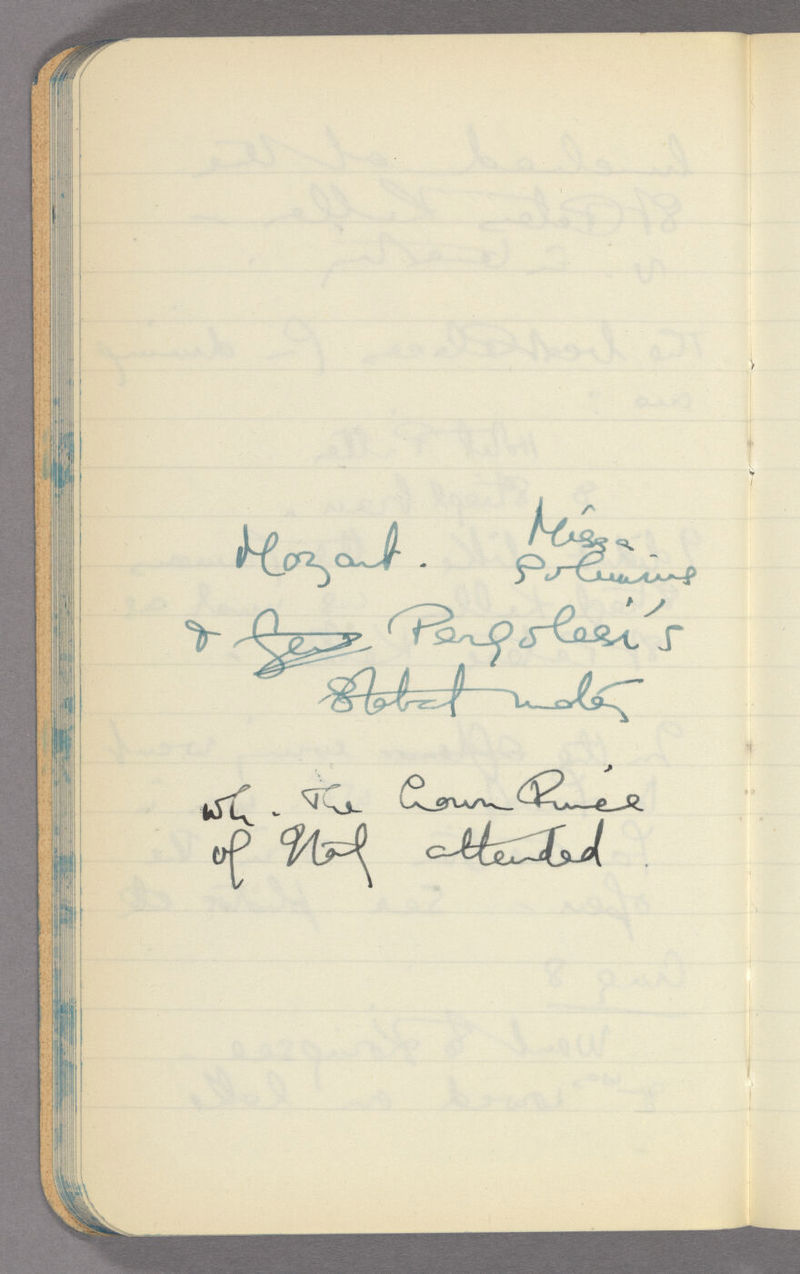 Mozart. Missa
Solemnis
& Pergolesi's
Stabat mater
wh. the Crown Prince
of Italy attended